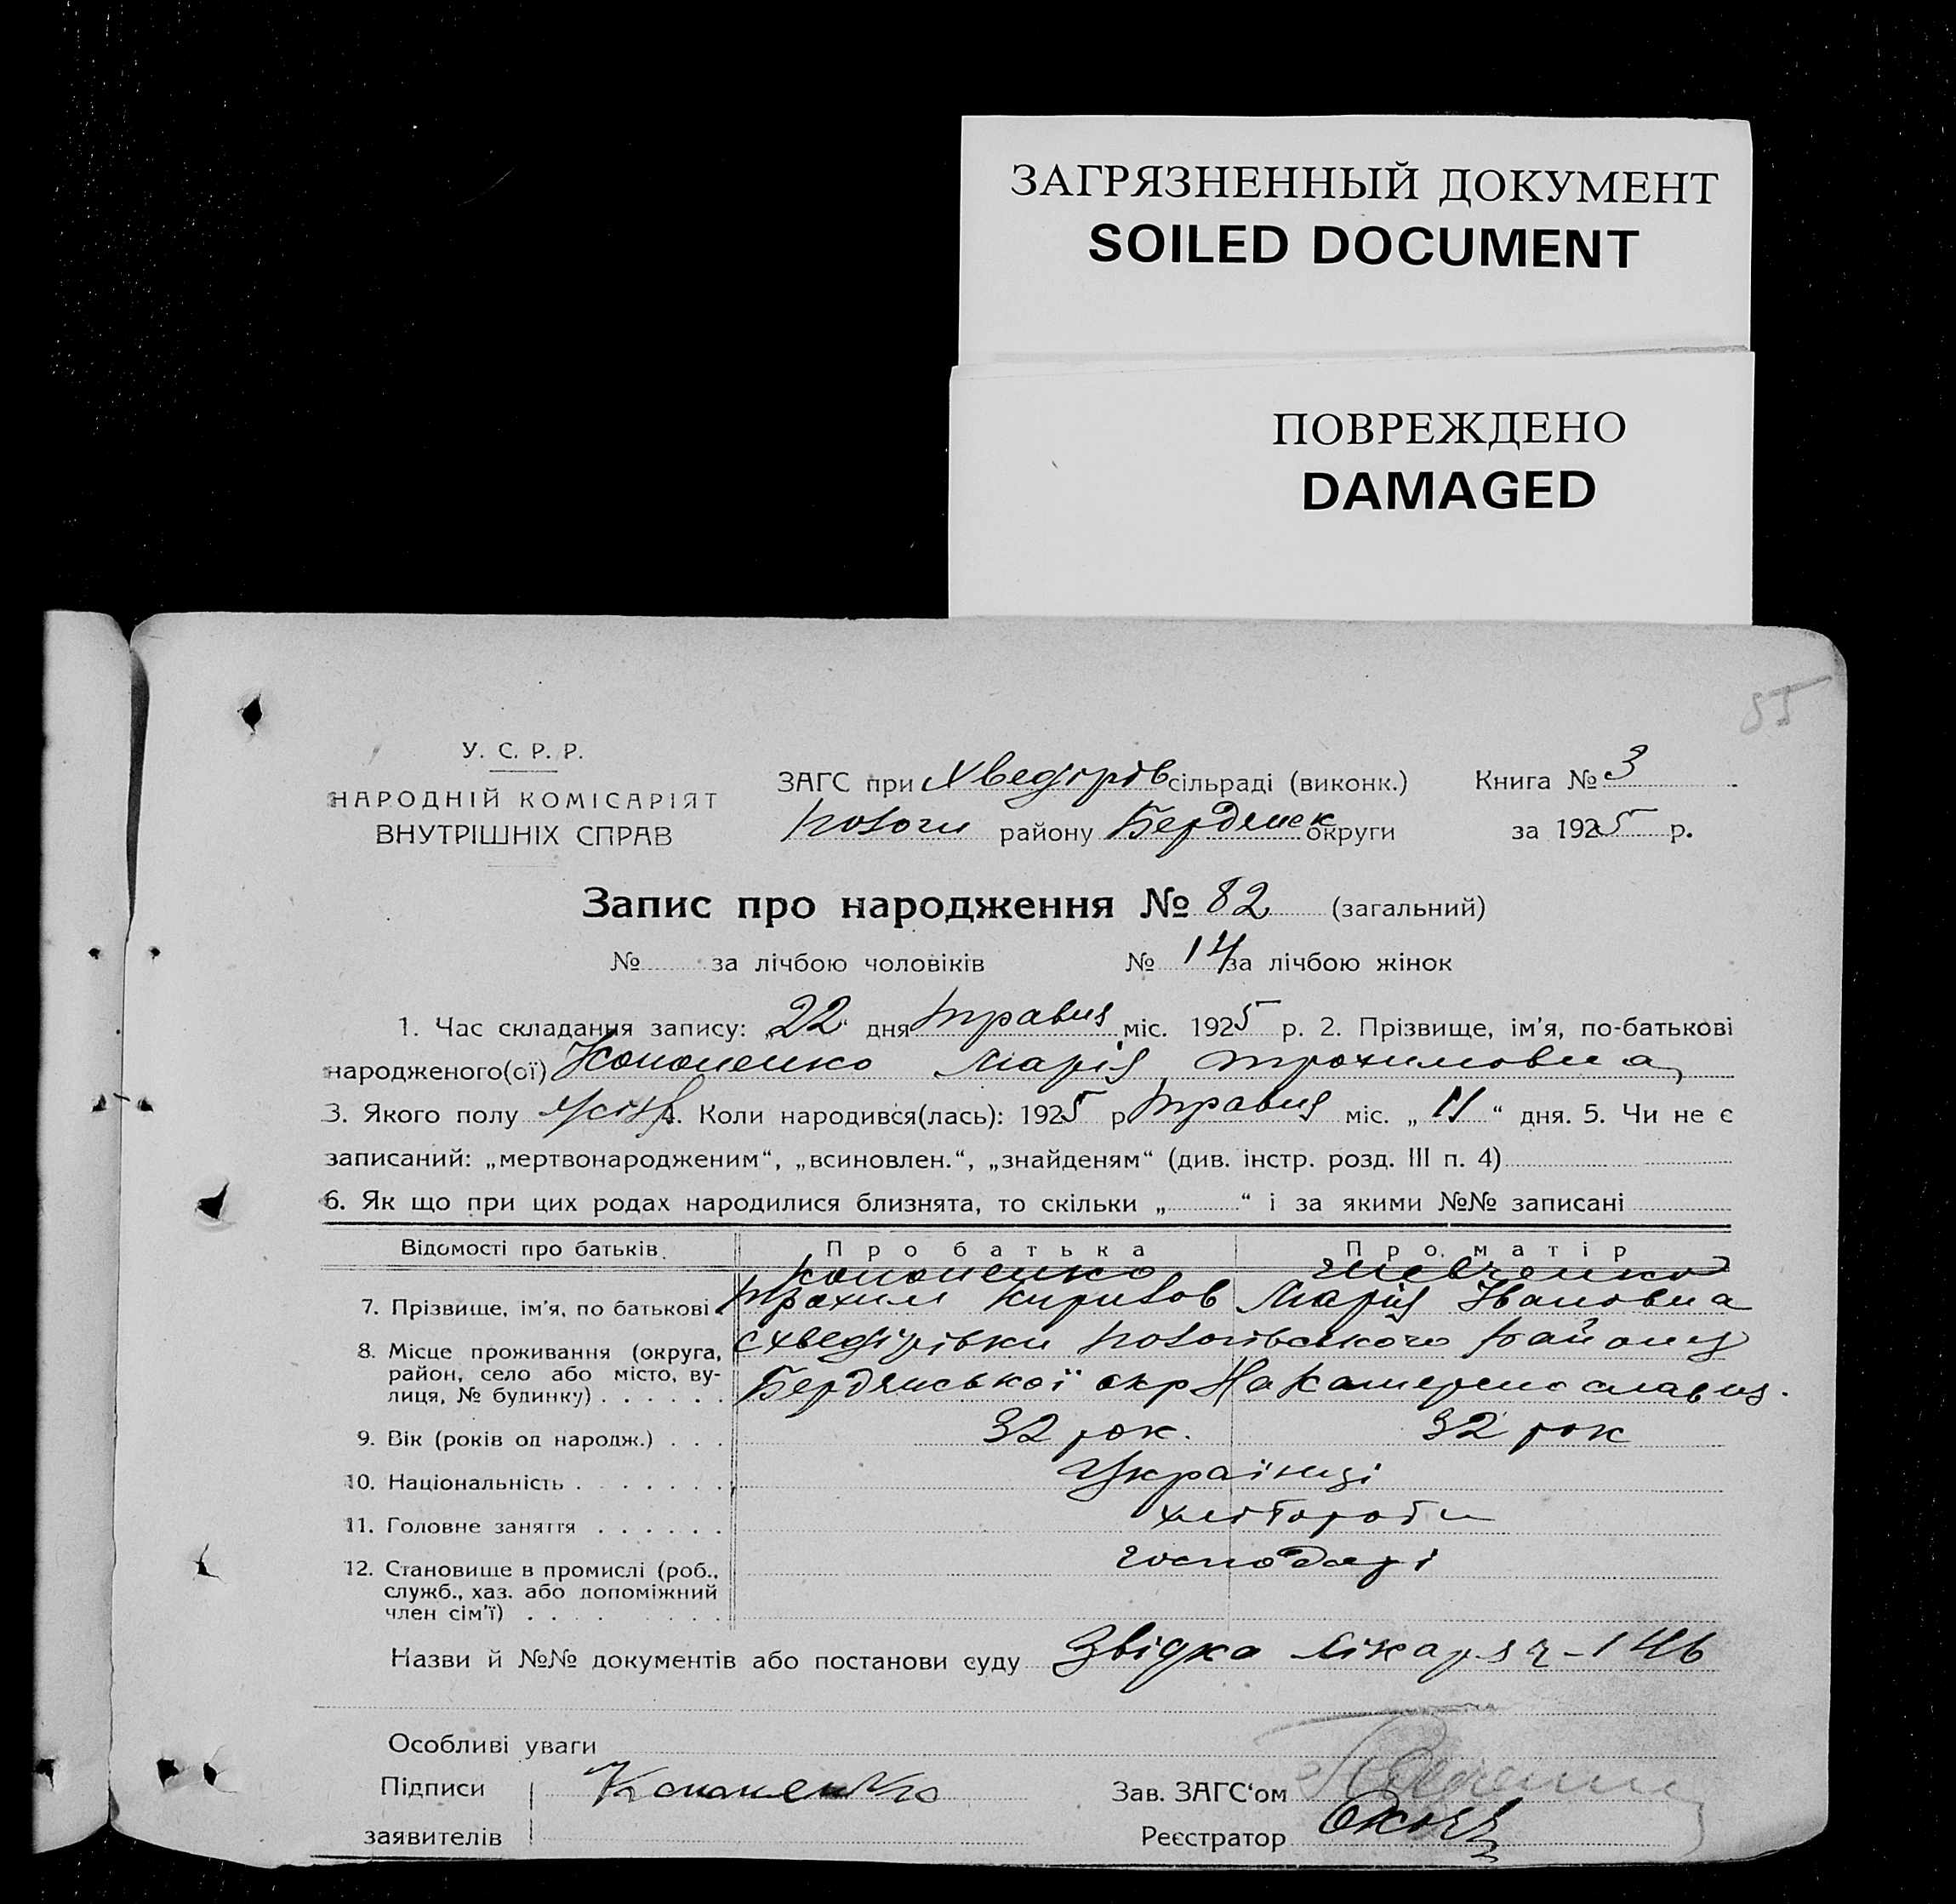 ЗАГРЯЗНЕННЫЙ ДОКУМЕНТ
SOILED DOCUMENT
ПОВРЕЖДЕНО
DAMAGED
55
У. С. Р. Р.
НАРОДНІЙ КОМІСАРІЯТ
ВНУТРІШНІХ СПРАВ
ЗАГС при Хведірів сільраді (виконк.) Книга № 3
Пологи району Бердянск округи за 1925 р.
Запис про народження № 82 (загальний)
№ за лічбою чоловіків № 14 за лічбою жінок
1. Час складання запису: „22" дня травня міс. 1925 р. 2. Прізвище, ім'я, по-батькові
народженого(ої) Кононенко Марія Трохимовна
3. Якого полу жіноч. 4. Коли народився(лась): 1925 р травня міс. „ 11 “ дня. 5. Чи не є
записаний: „мертвонародженим“, „всиновлен.“, „знайденям“ (див. інстр. розд. III п. 4)
6. Як що при цих родах народилися близнята, то скільки „ “ і за якими №№ записані
Відомості про батьків. Про батька Про матір
Кононенко Шевченко
7. Прізвище, ім'я, по батькові Трохим Кирилов Марія Івановна
8. Місце проживання (округа, район, село або місто, вулиця, № будинку) с Хведірівки Пологівського району
Бердянської окр На Катеренославщ.
9. Вік (років од народж.) 32 рок. 32 рок
10. Національність Українці
11. Головне заняття хлібороби
12. Становище в промислі (роб., служб., хаз. або допоміжний член сім'ї) господарі
Назви й №№ документів або постанови суду Звідка лікаря ч-146
Особливі уваги
Підписи Кононенко Зав. ЗАГС‘ом
заявителів Реєстратор